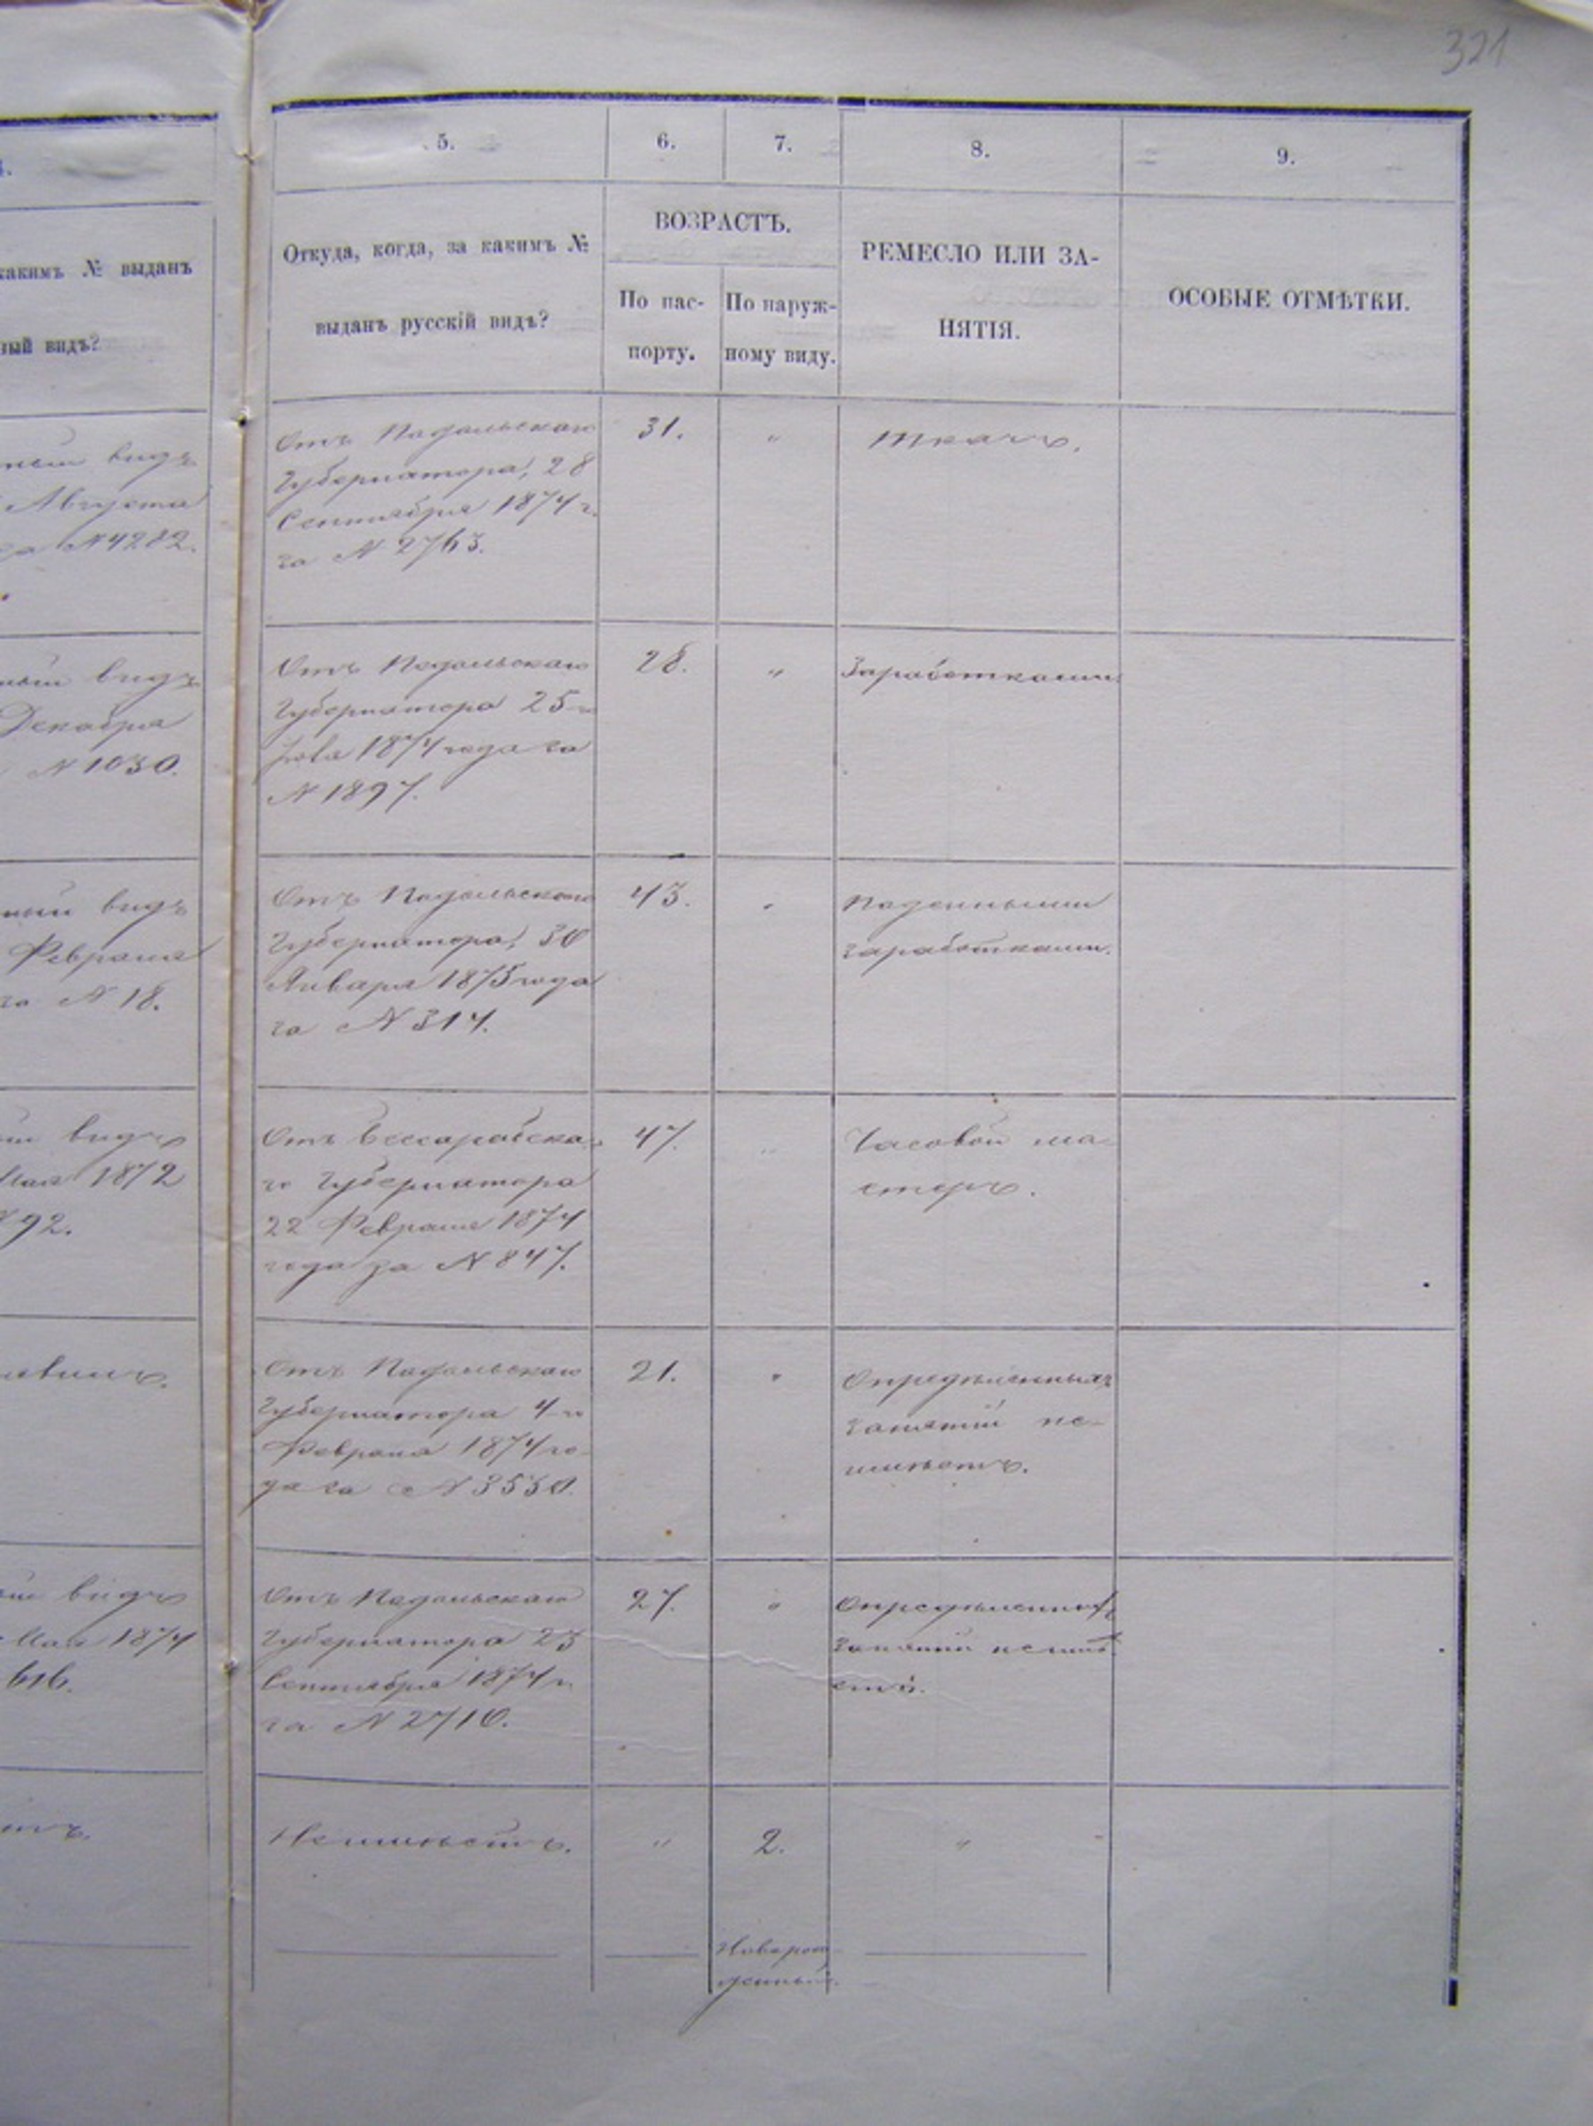 321
5.
6.
7.
8.
9.
Откуда, когда, за какимъ №
выданъ русскій видъ?
ВОЗРАСТЪ.
По пас-
порту.
По наруж-
ному виду.
РЕМЕСЛО ИЛИ ЗА-
НЯТІЯ.
ОСОБЫЕ ОТМѢТКИ.
какимъ № выданъ
ный видъ?
видъ
Августа
за № 4282.
Отъ Подольскаго
Губернатора, 28
Сентября 1874 г.
за № 2763.
31.
"
Ткачъ.
видъ
Декабря
№ 1030.
Отъ Подольскаго
Губернатора 25-го
1874 года за
№ 1897.
28.
"
Заработками
видъ
Февраля
за № 18.
Отъ Подольскаго
Губернатора, 30
Января 1875 года
за № 314.
43.
"
Поденными
заработками.
видъ
Мая 1872
92.
Отъ Бессарабска-
го Губернатора
22 Февраля 1874
года за № 847.
47.
"
Часовой ма-
стеръ.
Отъ Подольскаго
Губернатора 4-го
Февраля 1874 го-
да за № 3530.
21.
"
Опредѣленныхъ
занятій не-
имѣетъ.
видъ
Мая 1874
616.
Отъ Подольскаго
Губернатора 23
Сентября 1874 г.
за № 2710.
27.
"
Опредѣленныхъ
занятій неимѣ-
етъ.
Неимѣетъ.
"
2.
"
Неворож-
денный.